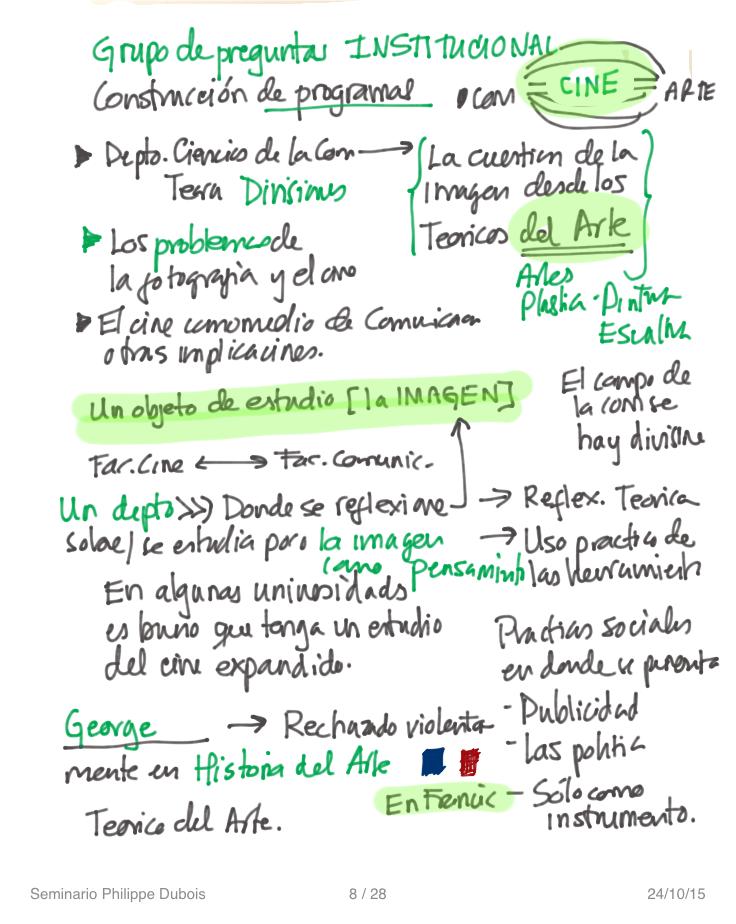 Grupo de preguntas INSTITUCIONAL
Construcción de programas
• Com = CINE = ARTE
▶ Depto. Ciencias de la Com →
Tesra Divisiones
La cuestion de la
Imagen desde los
Teoricos del Arte
Artes
Plastia - Pintura
Escultura
▶ Los problemas de
la fotografia y el cine
▶ El cine como medio de Comunicacion
otras implicacines.
Un objeto de estudio [la IMAGEN]
El campo de
la com se
hay divisine
Fac. Cine ⟷ Fac. Comunic.
Un depto >>) Donde se reflexione
sobre / se estudia pero la imagen
como pensamint
→ Reflex. Teorica
→ Uso practico de
las herramient
En algunas universidads
es bueno que tenga un estudio
del cine expandido.
Practicas sociales
en donde se
- Publicidad
- Las politic
- Sólo como
instrumento.
George → Rechazado violenta
mente en Historia del Arte
En Francic
Teorico del Arte.
Seminario Philippe Dubois 8 / 28 24/10/15